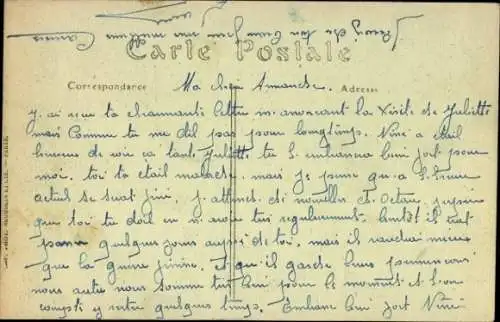 Carte Postale
Correspondance Ma chère Amanche. Adresse
j. ai reçu ta charmante lettre m. anonçant la visite de Juliette
mais comme tu me dit pas pour longtemps. Nini a était
heureuse de voir sa tante Juliette tu l. embrassera bien fort pour
moi. toi tu était malade. mais je pense qu. a l. heure
actuel se serat fini. j. attend des nouvelles d. Octave. j espère
que toi tu doit en n. avoir régulièrement. bientôt il vat
passer quelques jours auprès de toi. mais il vaudrai mieux
que la guerre finisse. et que il garde leurs permissions
nous autre nous somme très bien pour le moment et l. on
compte y rester quelques temps. Embrasse bien fort Nini